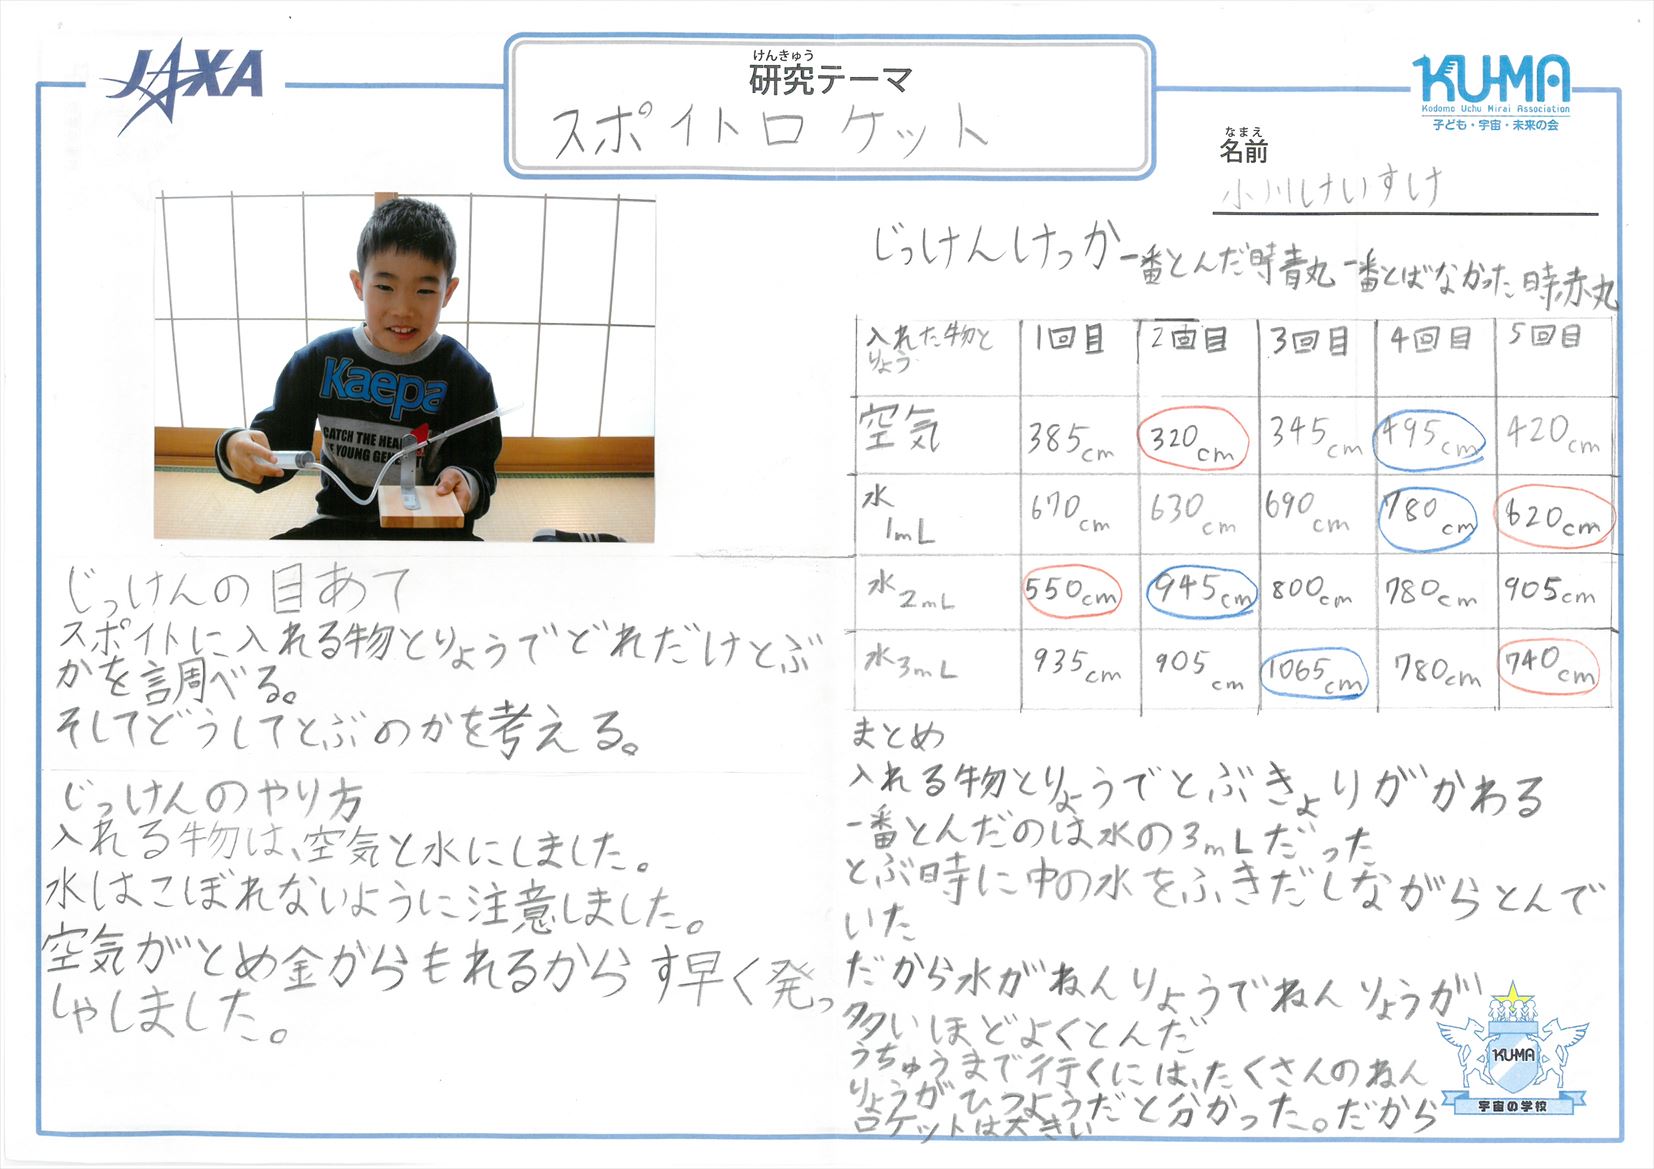 JAXA
けんきゅう
研究テーマ
スポイトロケット
KU-MA
Kodomo Uchu Mirai Association
子ども・宇宙・未来の会
なまえ
名前
小川けいすけ
Kaepa
CATCH THE HEA
E YOUNG GENE
じっけんの目あて
スポイトに入れる物とりょうでどれだけとぶ
かを調べる。
そしてどうしてとぶのかを考える。
じっけんのやり方
入れる物は、空気と水にしました。
水はこぼれないように注意しました。
空気がとめ金からもれるからす早く発っ
しゃしました。
じっけんけっか 一番とんだ時青丸 一番とばなかった時赤丸
入れた物と りょう 1回目 2回目 3回目 4回目 5回目
空気 385cm 320cm 345cm 495cm 420cm
水 1mL 670cm 630cm 690cm 780cm 620cm
水 2mL 550cm 945cm 800cm 780cm 905cm
水 3mL 935cm 905cm 1065cm 780cm 740cm
まとめ
入れる物とりょうでとぶきょりがかわる
一番とんだのは水の3mLだった
とぶ時に中の水をふきだしながらとんで
いた
だから水がねんりょうでねんりょうが
多いほどよくとんだ
うちゅうまで行くには、たくさんのねん
りょうがひつようだと分かった。だから
ロケットは大きい
KUMA
宇宙の学校